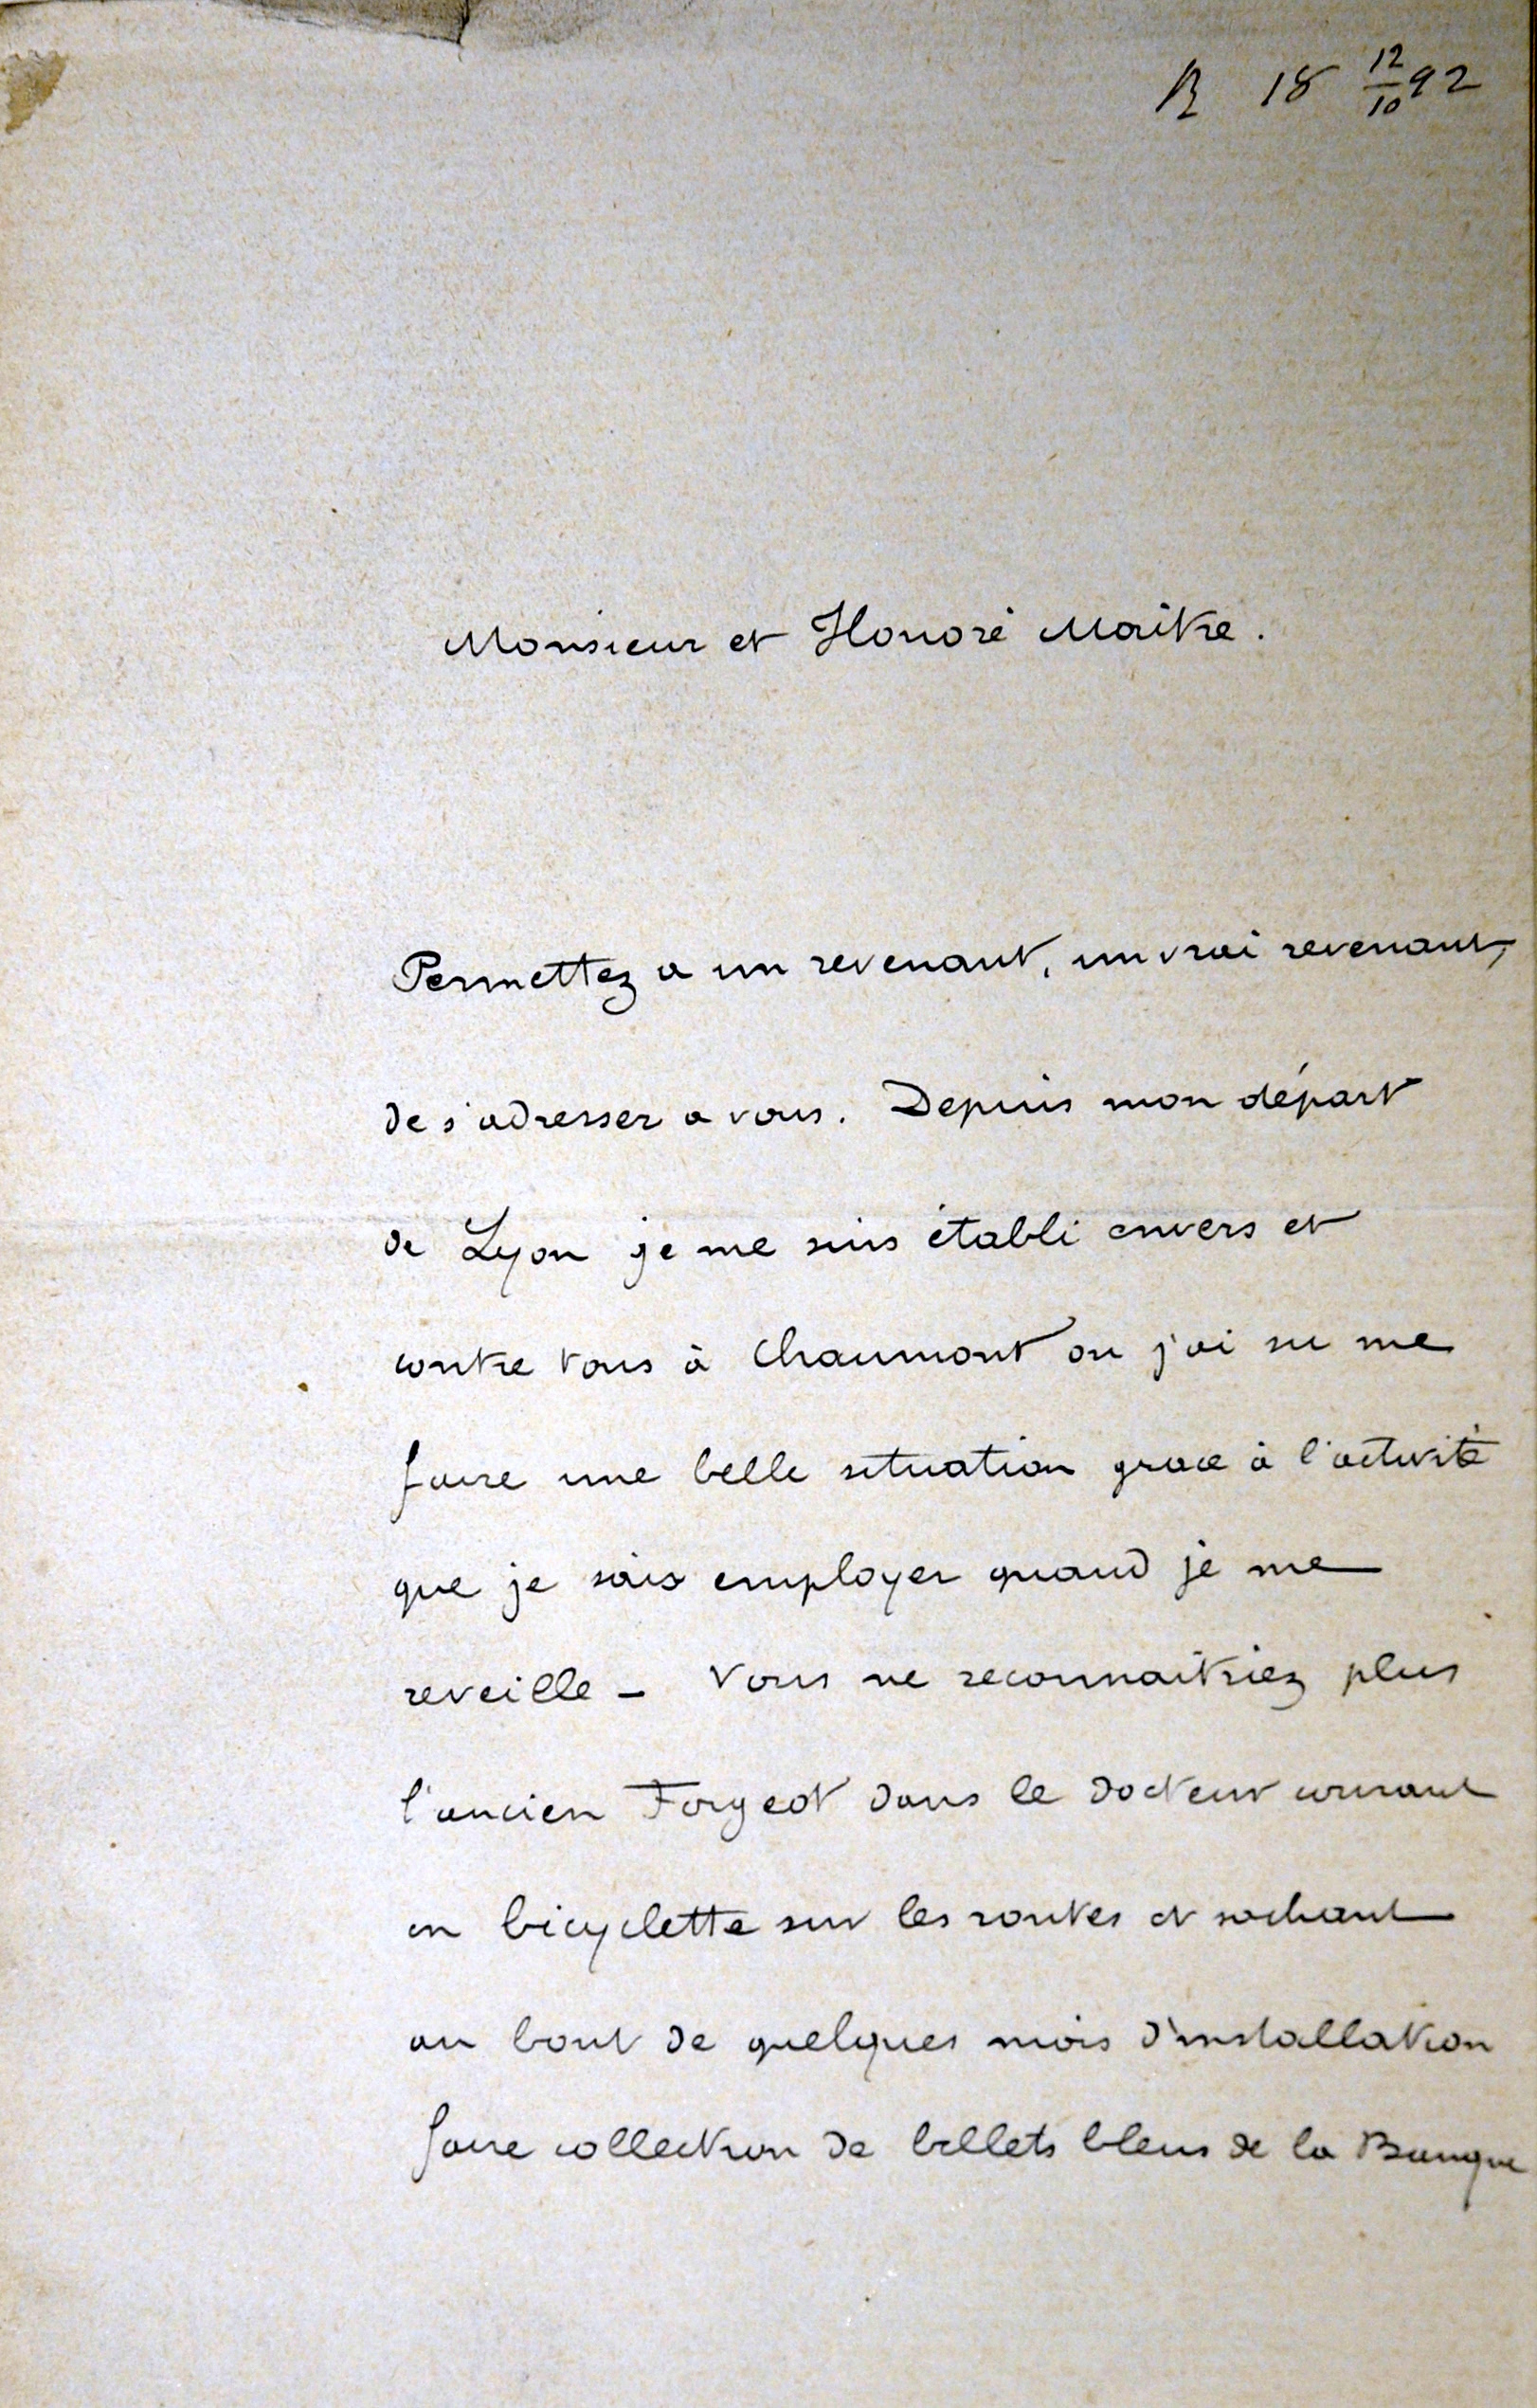 R 18 12/10 92
Monsieur et Honoré Maître.
Permettez a un revenant, un vrai revenant,
de s'adresser a vous. Depuis mon départ
de Lyon je me suis établi envers et
contre tous à Chaumont ou j'ai su me
faire une belle situation grace à l'activité
que je sais employer quand je me
reveille - Vous ne reconnaitriez plus
l'ancien Forgeot dans le docteur courant
en bicyclette sur les routes et sachant
au bout de quelques mois d'installation
faire collection de billets bleus de la Banque